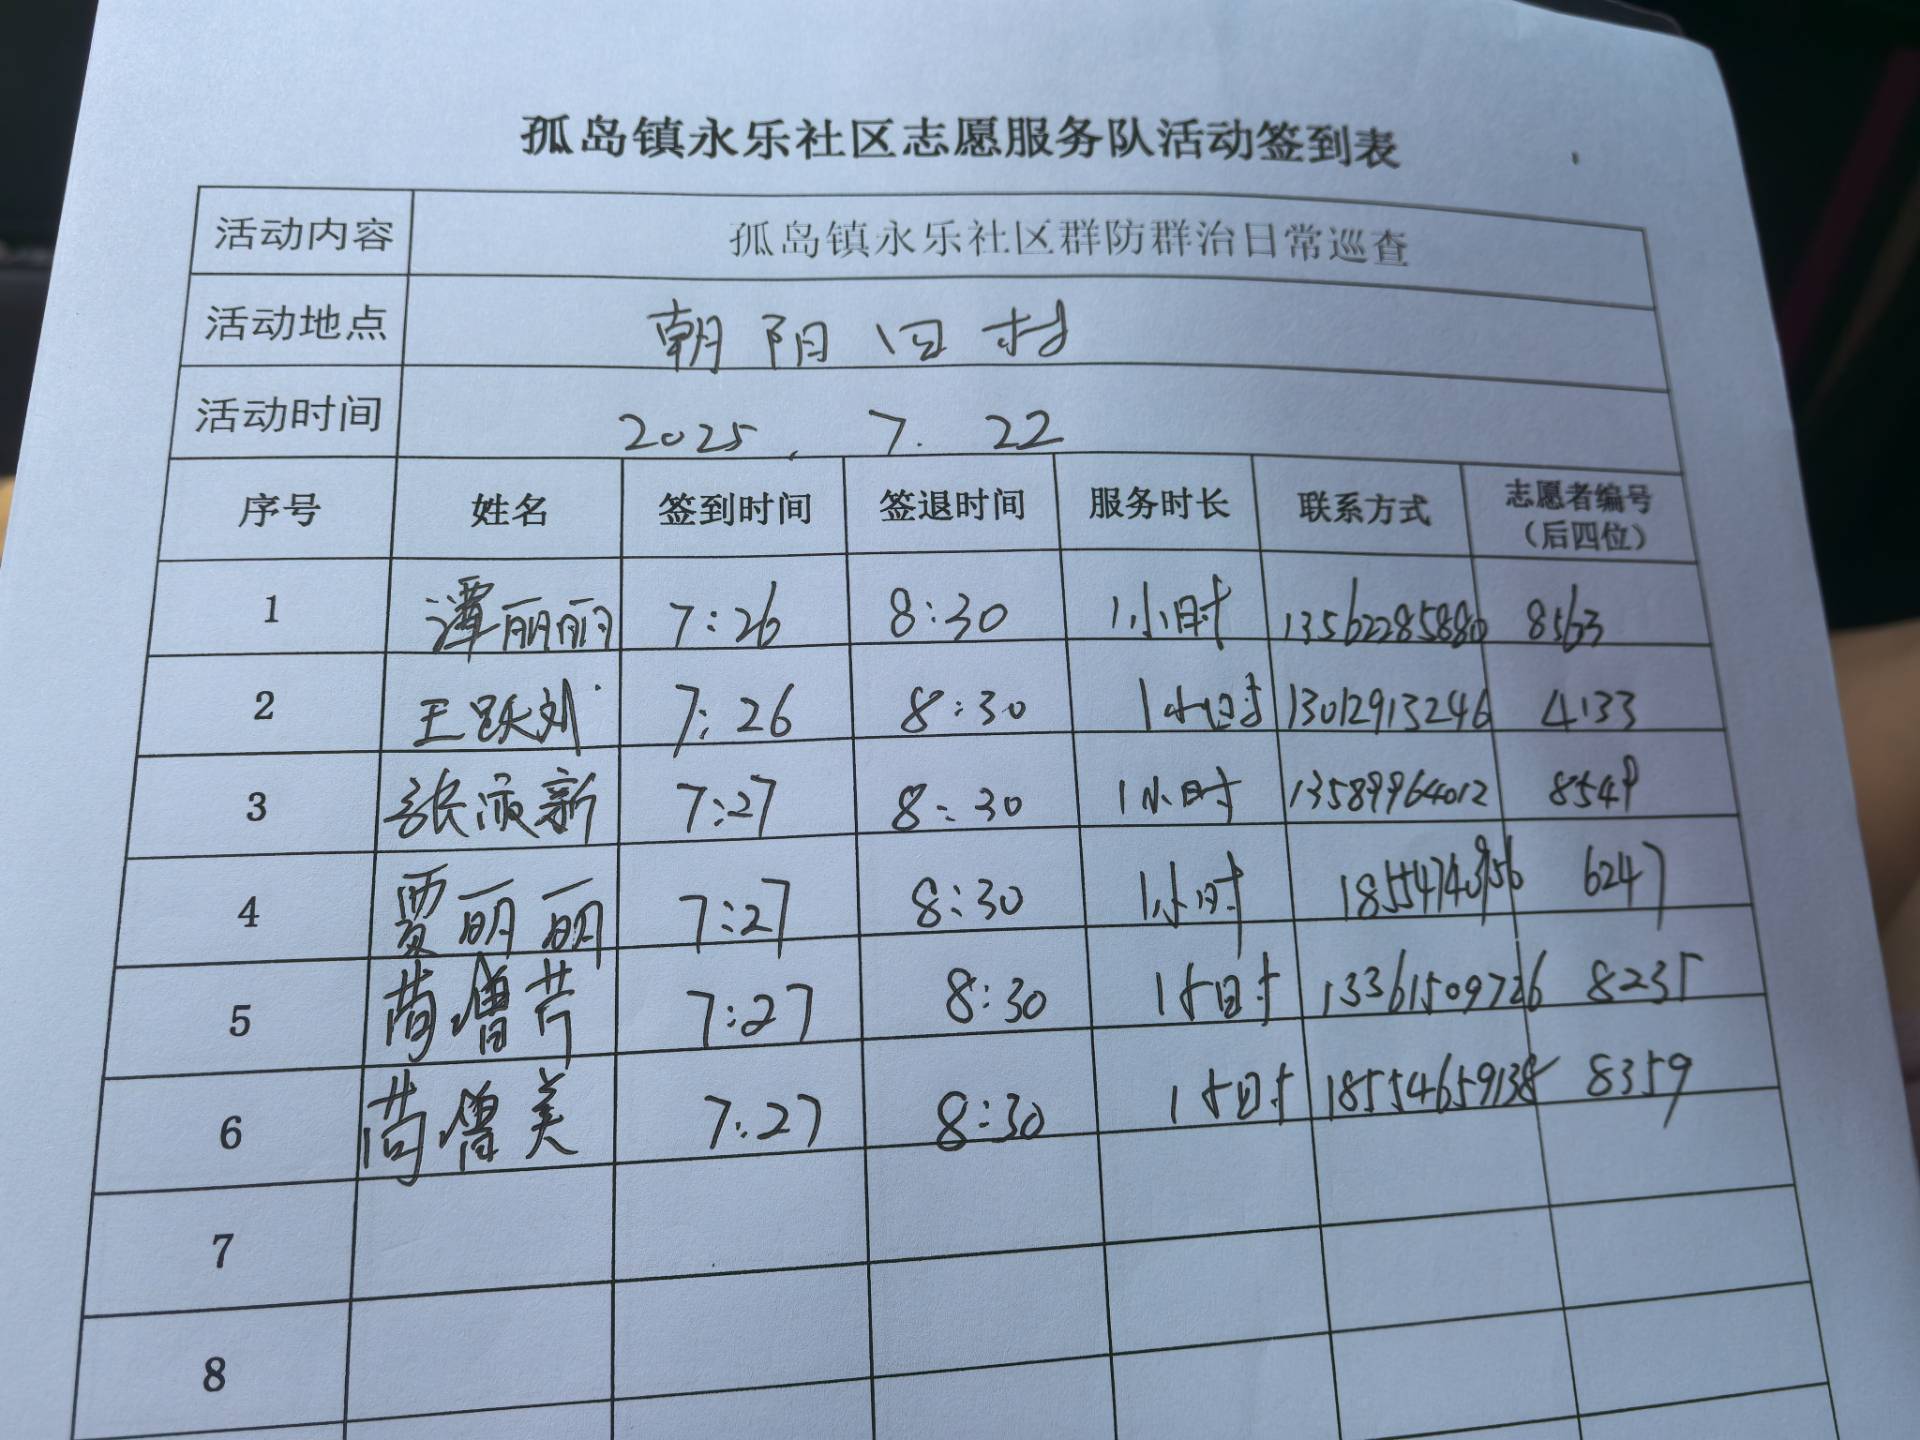 孤岛镇永乐社区志愿服务队活动签到表
活动内容 孤岛镇永乐社区群防群治日常巡查
活动地点 朝阳旧村
活动时间 2025.7.22
序号 姓名 签到时间 签退时间 服务时长 联系方式 志愿者编号（后四位）
1 谭丽丽 7:26 8:30 1小时 13562285880 8563
2 王跃刘 7:26 8:30 1小时 13012913246 4133
3 张 新 7:27 8:30 1小时 13589964012 8549
4 贾丽丽 7:27 8:30 1小时 6247
5 苘增芹 7:27 8:30 1小时 13361509726 8235
6 苘增美 7:27 8:30 1小时 18554659138 8359
7
8